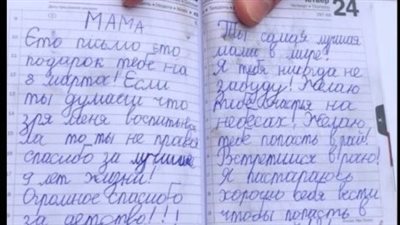 МАМА
Ето письмо ето
подарок тебе на
8 марта! Если
ты думаеш что
зря меня воспитыва
ла то ты не права
спасибо за лучшие
9 лет жизни!
Огромное спасибо
за детство!!!
24
Ты самая лучшая
мама в мире!
Я тебя никогда не
забуду! Желаю
счастья на
небесах! Желаю
тебе попасть в рай!
Встретимся в раю!
Я постараюсь
хорошо себя вести
чтобы попасть в